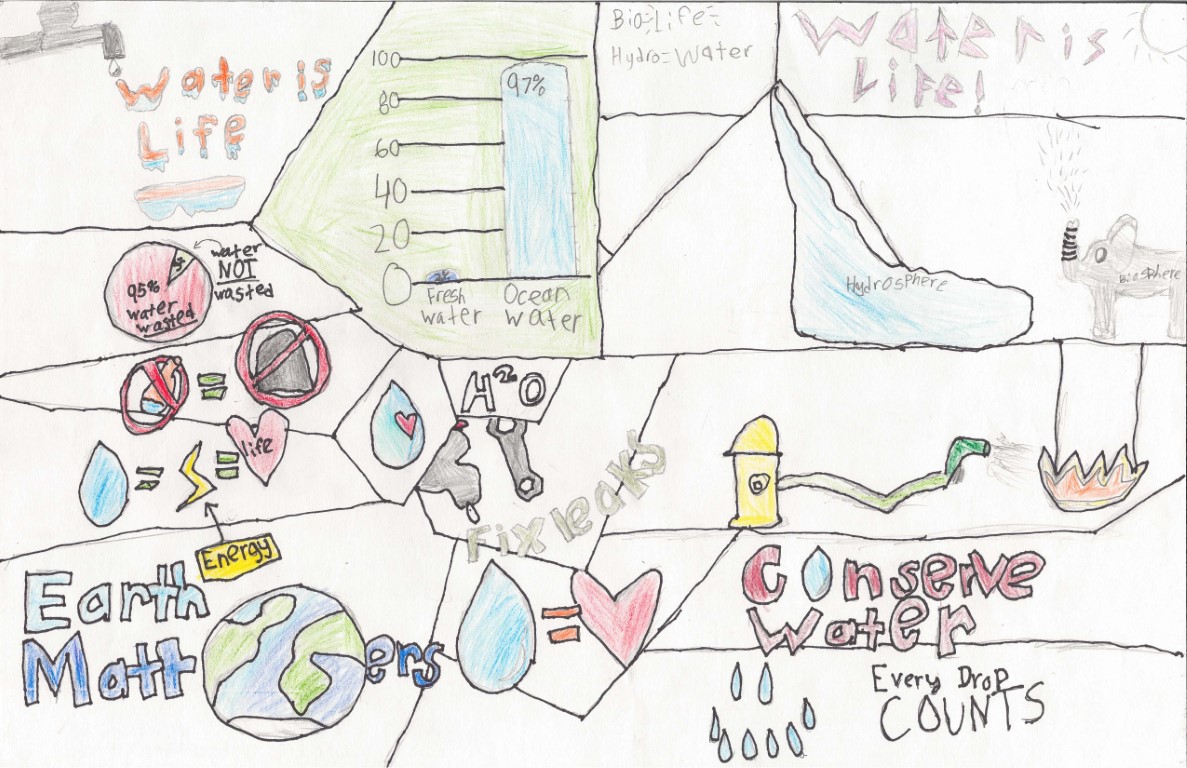 Water is
Life
100
80
60
40
20
0
97%
Fresh
water
Ocean
water
Bio=Life=
Hydro=Water
Water is
Life!
Hydrosphere
Biosphere
water
NOT
wasted
95%
water
wasted
=
= =
life
Energy
H2O
Fix leaks
Earth
Matters
=
Conserve
Water
Every Drop
COUNTS